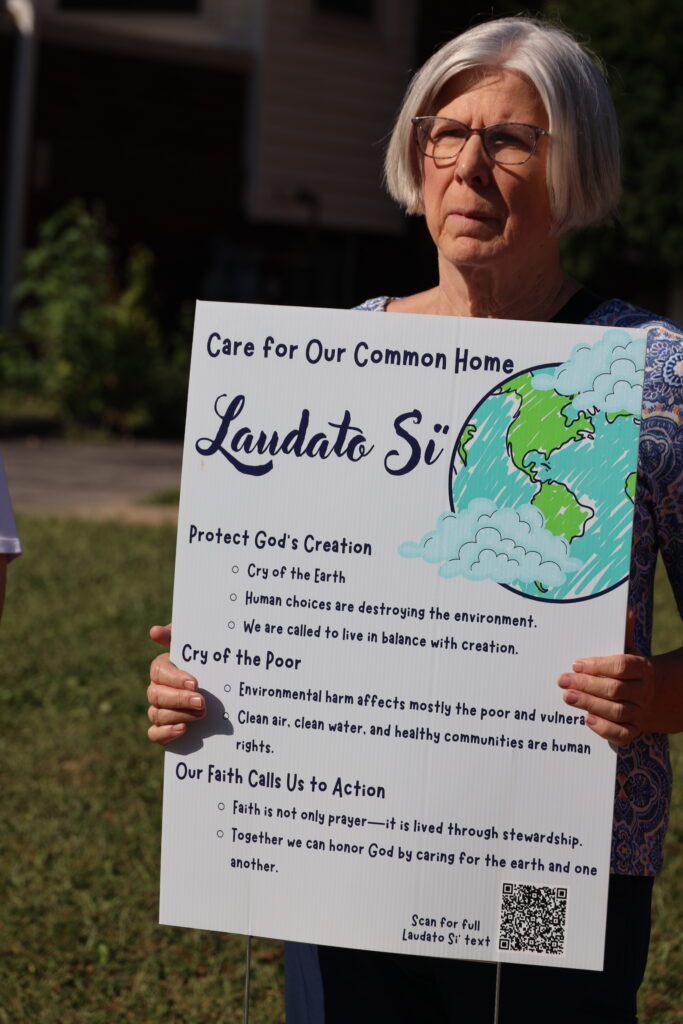 Care for Our Common Home
Laudato Si'
Protect God's Creation
○ Cry of the Earth
○ Human choices are destroying the environment.
○ We are called to live in balance with creation.
Cry of the Poor
○ Environmental harm affects mostly the poor and
○ Clean air, clean water, and healthy communities are human
rights.
Our Faith Calls Us to Action
○ Faith is not only prayer—it is lived through stewardship.
○ Together we can honor God by caring for the earth and one
another.
Scan for full
Laudato Si' text